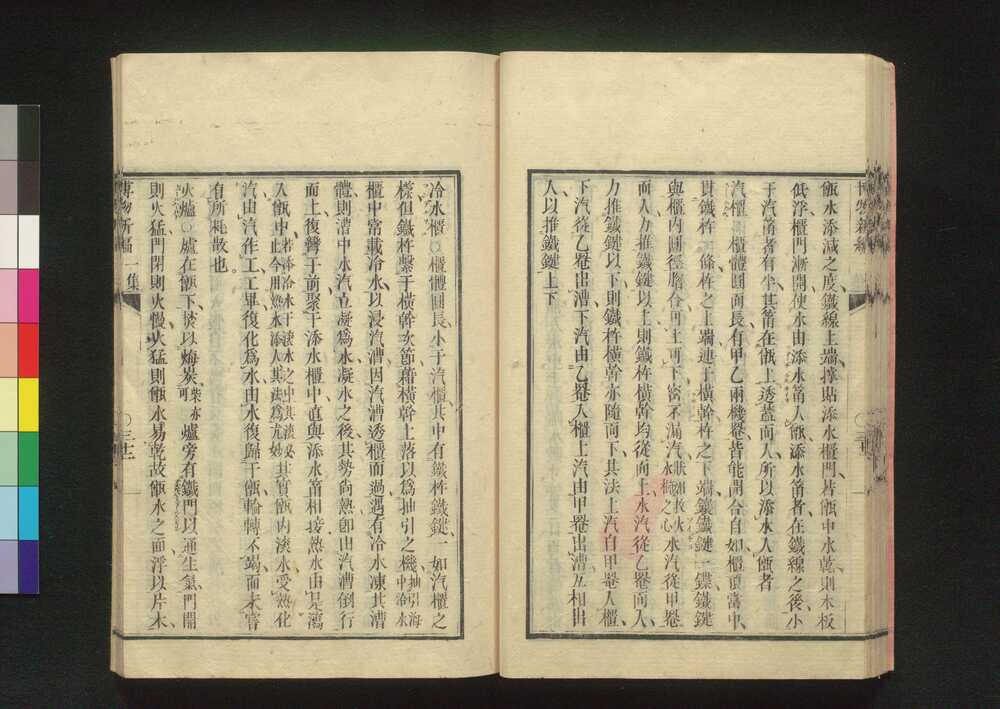 甑水添減之度鐵線上端撐貼添水櫃門若甑中水乾則木板
低浮櫃門漸開使水由添水筩入甑添水筩者在鐵線之後小
于汽筩者有半其筩在甑上透蓋而入所以添水入甑者
汽櫃○櫃體圓而長有甲乙兩機罨皆能開合自如櫃頂當中
貫鐵杵一條杵之上端連于橫幹杵之下端鑲鐵鍵一鐵鍵
與櫃內圓徑脗合可上可下密不漏汽狀如救火水桶之心水汽從甲罨
而入力推鐵鍵以上則鐵杵橫幹均從而上水汽從乙罨而入
力推鐵鍵以下則鐵杵橫幹亦隨而下其法上汽自甲罨入櫃
下汽從乙罨出漕下汽由乙罨入櫃上汽由甲罨出漕互相出
入以推鐵鍵上下
冷水櫃○櫃體圓長小于汽櫃其中有鐵杵鐵鍵一如汽櫃之
樣但鐵杵繫于橫幹次節藉橫幹上落以為抽引之機抽引海中冷水
櫃中常載冷水以浸汽漕因汽漕透櫃而過遇有冷水凍其漕
體則漕中水汽立凝為水凝水之後其勢尚熱卽由汽漕倒行
而上復彎于前聚于添水櫃中直與添水筩相接熱水由是瀉
入甑中 甑內淡水受熱化
汽由汽作工工畢復化為水由水復歸于甑輪轉不竭而未嘗
有所耗散也
火爐○處在甑下焚以煤炭柴亦可爐旁有鐵門以通生氣門開
則火猛門閉則火慢火猛則甑水易乾故甑水之面浮以片木
博物新編 一集
三十二